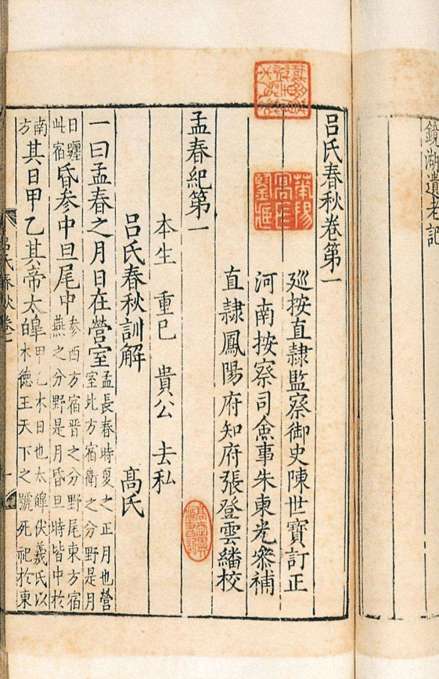 鏡湖遺老記
呂氏春秋卷第一
廵按直隸監察御史陳世寶訂正
河南按察司僉事朱東光叅補
直隸鳳陽府知府張登雲繙校
孟春紀第一
本生 重巳 貴公 去私
呂氏春秋訓解 高氏
一曰孟春之月日在營室孟長春時夏之正月也營室北方宿衛之分野是月
日躔此宿昏參中旦尾中參西方宿晉之分野尾東方宿燕之分野是月昏旦時皆中於
南方其日甲乙其帝太皥甲乙木日也太皥伏羲氏以木德王天下之號死祀於東